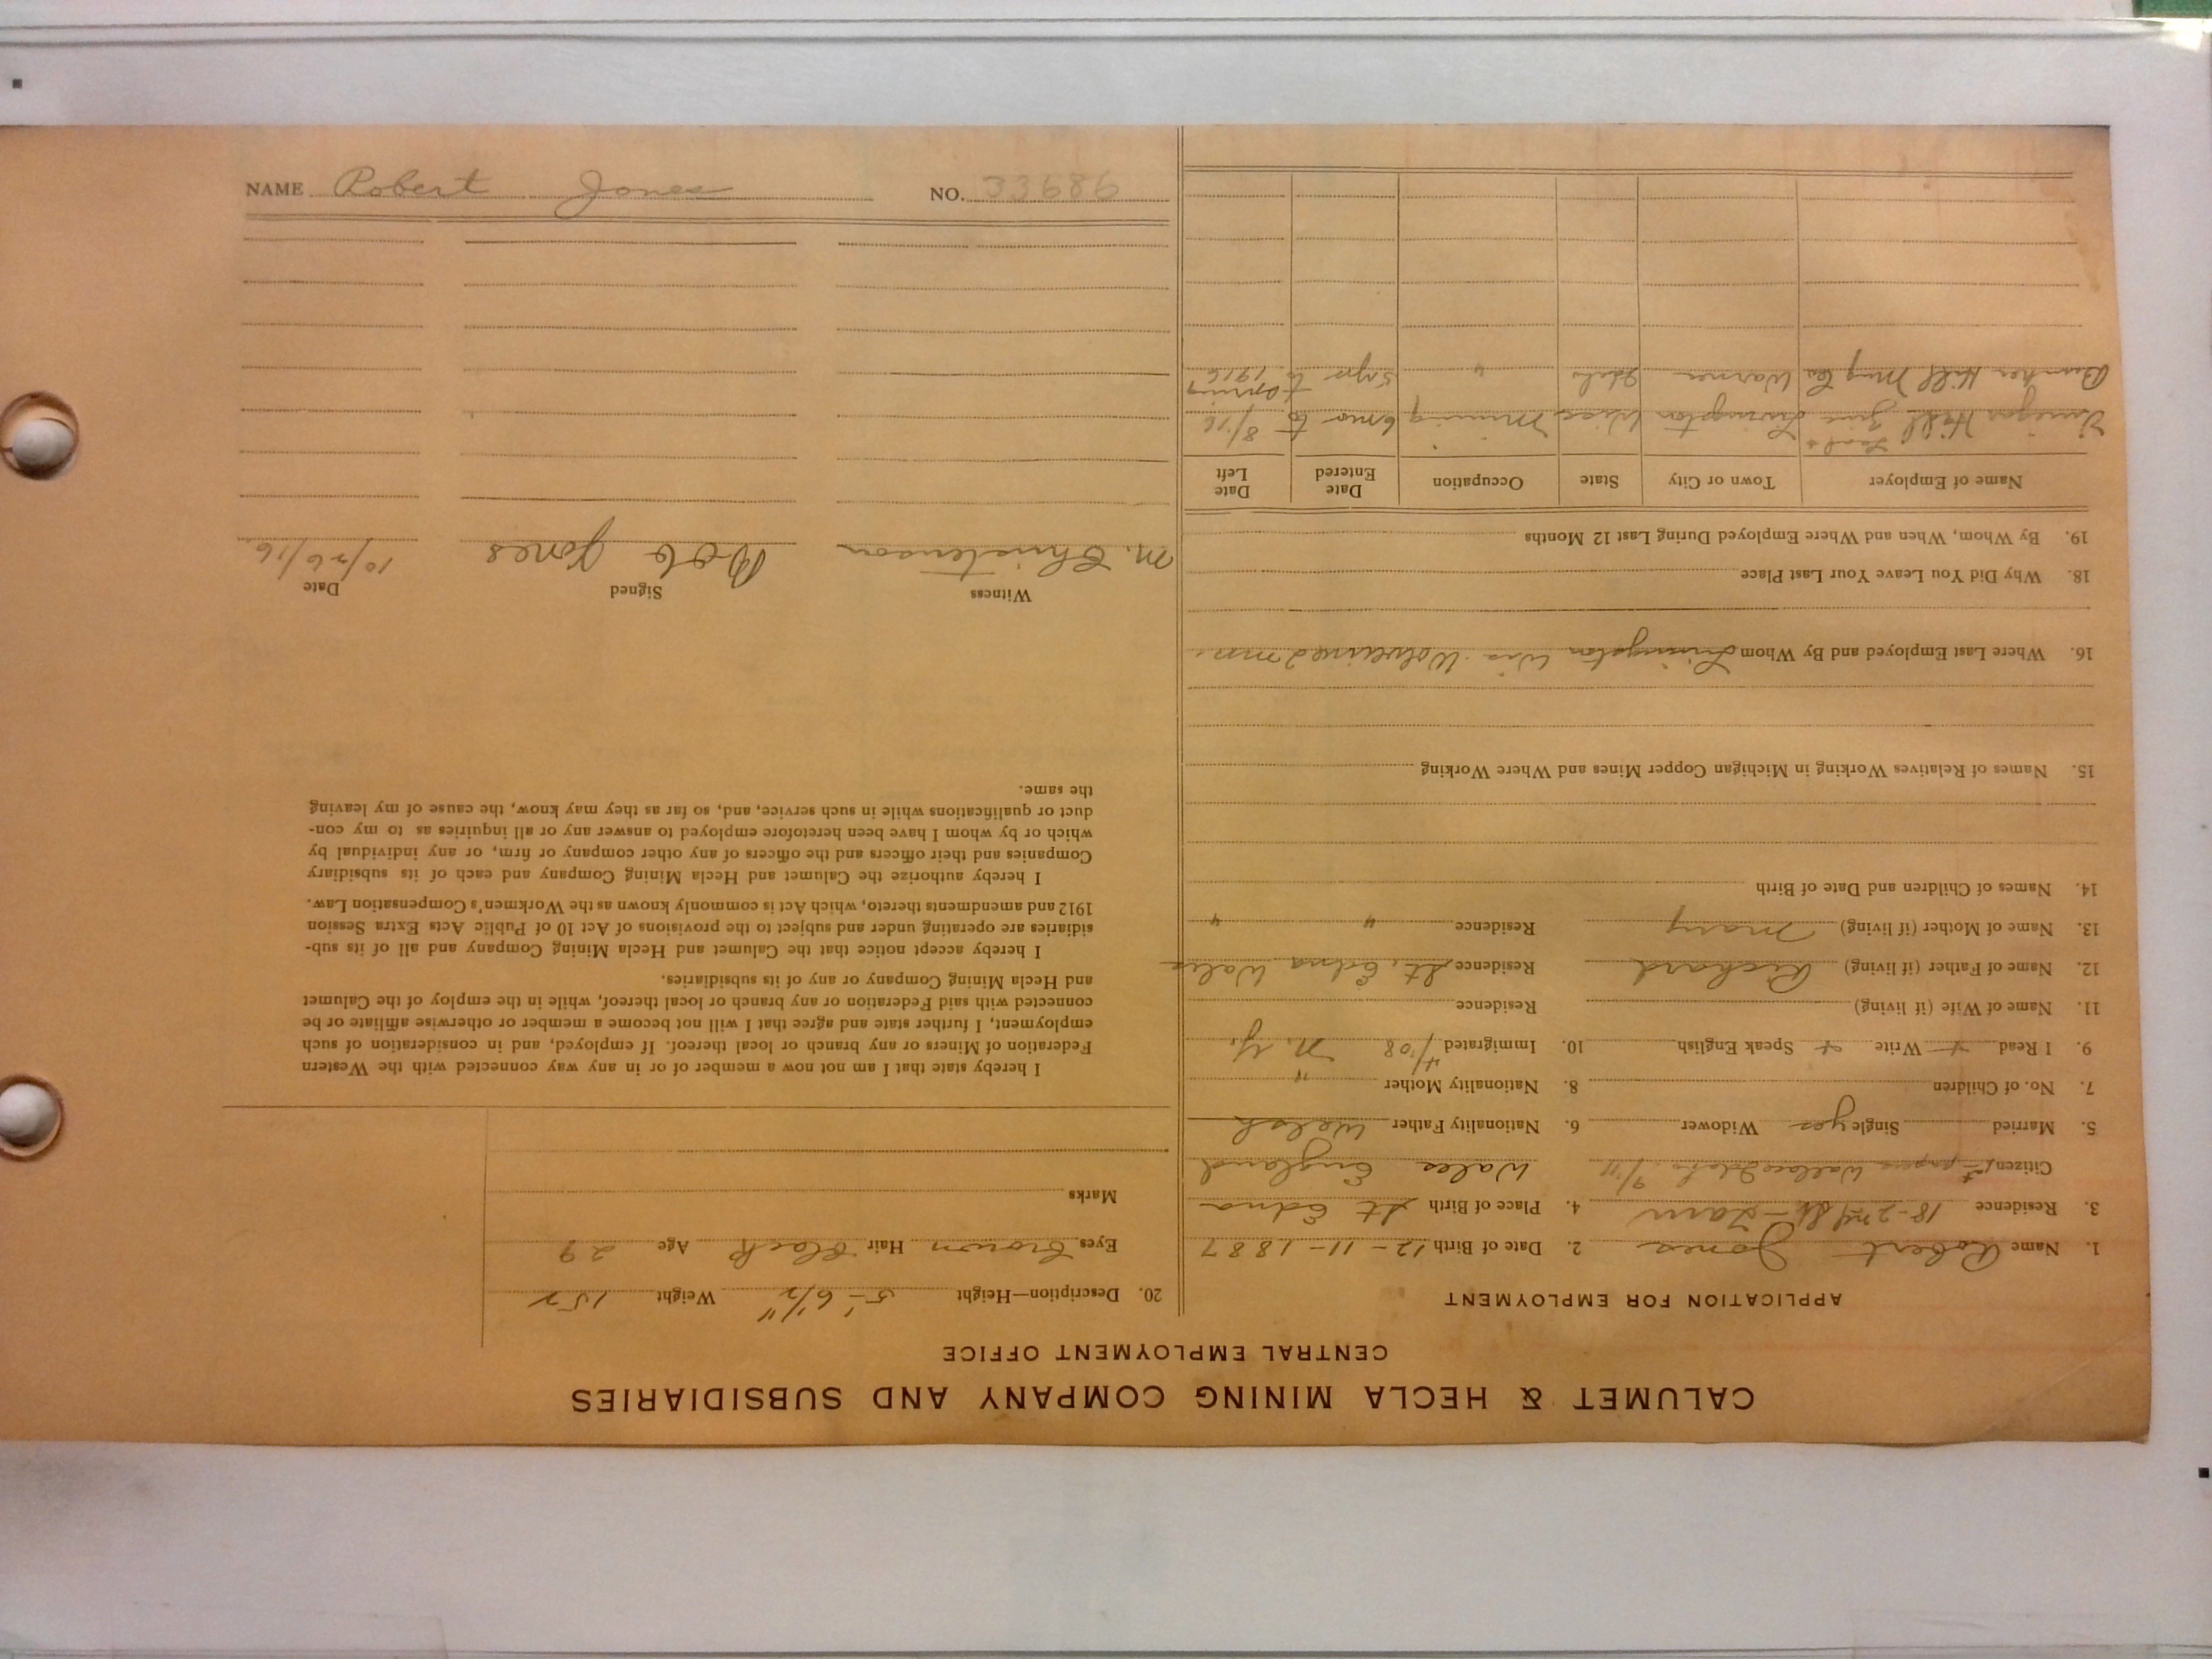 CALUMET & HECLA MINING COMPANY AND SUBSIDIARIES
CENTRAL EMPLOYMENT OFFICE
APPLICATION FOR EMPLOYMENT
1. Name Robert Jones 2. Date of Birth 12-11-1887
3. Residence 18-2nd St- 4. Place of Birth St Edna
Citizen 1st papers Wallace Idaho 9/11 Wales England
5. Married Single yes Widower 6. Nationality Father Welsh
7. No. of Children 8. Nationality Mother "
9. I Read + Write + Speak English 10. Immigrated 4/08 N. Y.
11. Name of Wife (if living) Residence
12. Name of Father (if living) Richard Residence St. Edna Wales
13. Name of Mother (if living) Mary Residence " "
14. Names of Children and Date of Birth
15. Names of Relatives Working in Michigan Copper Mines and Where Working
16. Where Last Employed and By Whom Livingston Wis Wolverine 2 mn.
18. Why Did You Leave Your Last Place
19. By Whom, When and Where Employed During Last 12 Months
Name of Employer Town or City State Occupation Date Entered Date Left
Hill Lead & Zinc Livingston Wisc Mining 6 mo to 8/16
Bunker Hill Mng Co Idaho " 5 yr to 1916
20. Description—Height 5'-6 1/2" Weight 152
Eyes Brown Hair Black Age 29
Marks
I hereby state that I am not now a member of or in any way connected with the Western
Federation of Miners or any branch or local thereof. If employed, and in consideration of such
employment, I further state and agree that I will not become a member or otherwise affiliate or be
connected with said Federation or any branch or local thereof, while in the employ of the Calumet
and Hecla Mining Company or any of its subsidiaries.
I hereby accept notice that the Calumet and Hecla Mining Company and all of its sub-
sidiaries are operating under and subject to the provisions of Act 10 of Public Acts Extra Session
1912 and amendments thereto, which Act is commonly known as the Workmen's Compensation Law.
I hereby authorize the Calumet and Hecla Mining Company and each of its subsidiary
Companies and their officers and the officers of any other company or firm, or any individual by
which or by whom I have been heretofore employed to answer any or all inquiries as to my con-
duct or qualifications while in such service, and, so far as they may know, the cause of my leaving
the same.
Witness Signed Date
M. Christenson Bob Jones 10/26/16
NAME Robert Jones NO. 33686